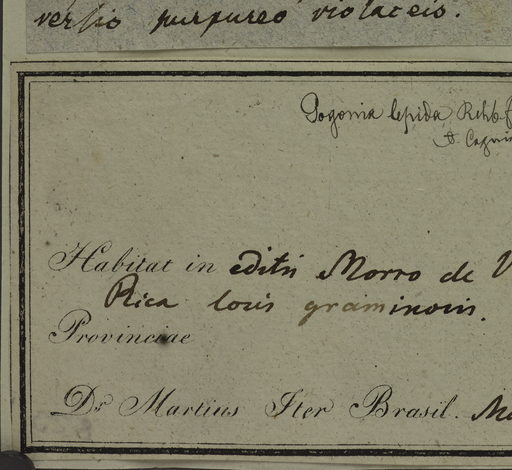 versio purpureo violaceis.
Pogonia lepida, Rchb. f
Habitat in editis Morro de V
Rica locis graminosis.
Provinciae
Dr Martius Iter Brasil. Ma